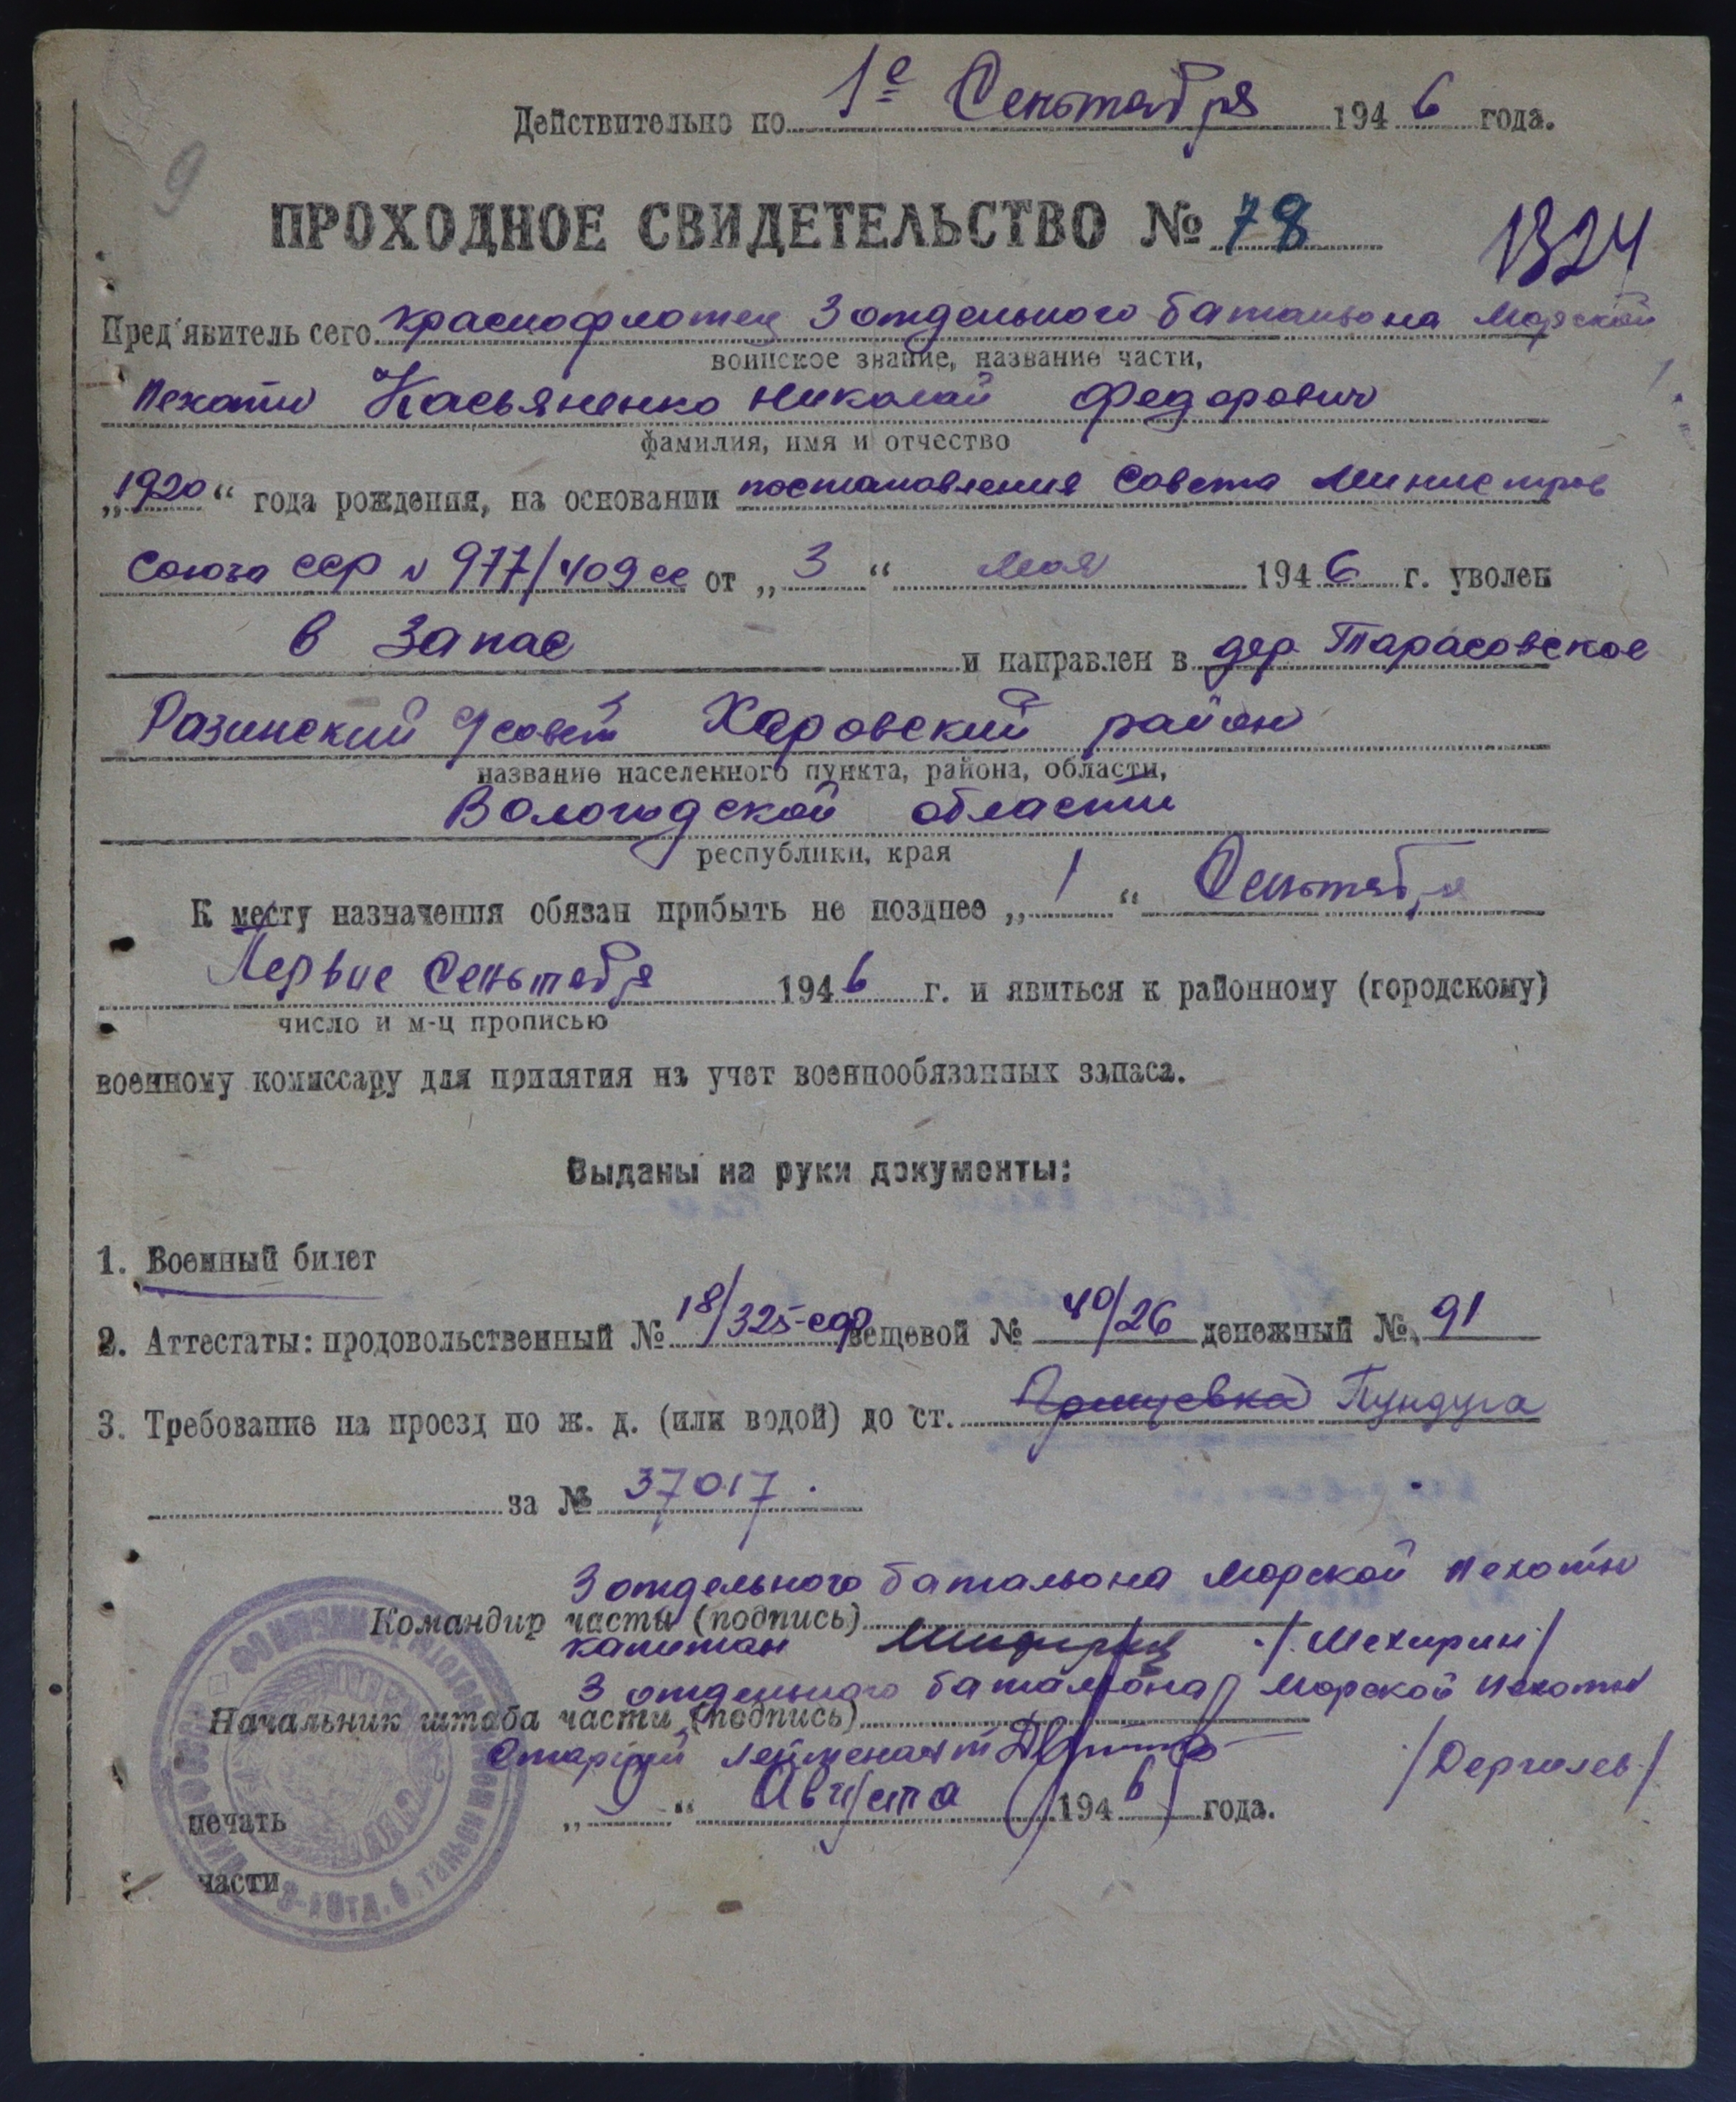 Действительно по 1е Сеньтября 1946 года.
9
ПРОХОДНОЕ СВИДЕТЕЛЬСТВО № 78
1324
Пред'явитель сего краснофлотец 3 отдельного батальона Морской
воинское звание, название части,
Пехоты Касьяненко Николай Федорович
фамилия, имя и отчество
„1920“ года рождения, на основании постановления Совета Министров
Союза ССР N 977/409сс от „3“ мая 1946 г. уволен
в запас и направлен в дер. Тарасовское
Разинский с/совет Харовский район
название населенного пункта, района, области,
Вологодской области
республики, края
К месту назначения обязан прибыть не позднее „1“ Сеньтября
Первое Сеньтября 1946 г. и явиться к районному (городскому)
число и м-ц прописью
военному комиссару для принятия на учет военнообязанных запаса.
Выданы на руки документы:
1. Военный билет
2. Аттестаты: продовольственный № 18/325-сдр вещевой № 40/26 денежный № 91
3. Требование на проезд по ж. д. (или водой) до ст. Пундуга
за № 37017.
3 отдельного батальона Морской Пехоты
Командир части (подпись)
капитан /Мехирин/
3 отдельного батальона Морской Пехоты
Начальник штаба части (подпись)
Старший лейтенант /Дергилев/
печать „ “ Августа 1946 года.
части